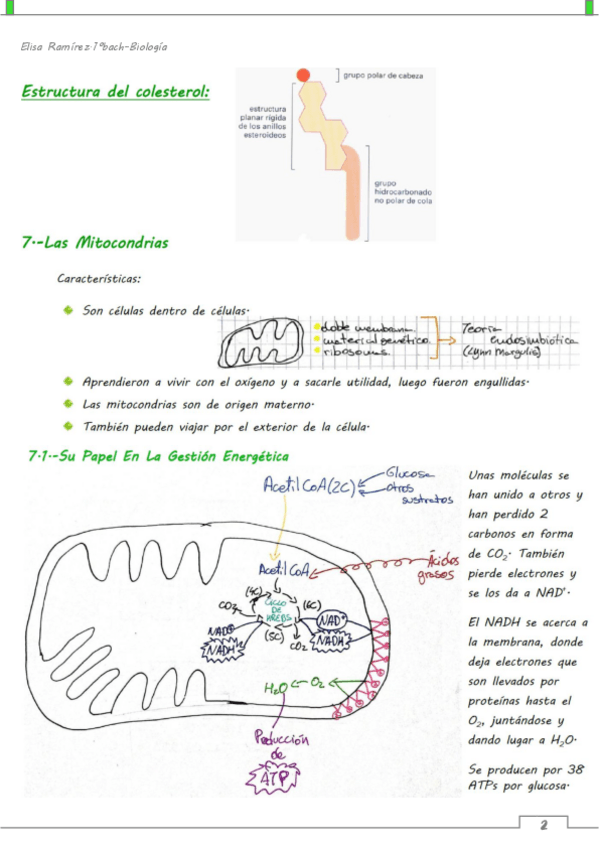 Elisa Ramírez 1ºbach-Biología
Estructura del colesterol:
grupo polar de cabeza
estructura
planar rígida
de los anillos
esteroideos
grupo
hidrocarbonado
no polar de cola
7.-Las Mitocondrias
Características:
Son células dentro de células.
doble membrana.
material genético.
ribosomas.
Teoría
endosimbiótica
(Lynn Margulis)
Aprendieron a vivir con el oxígeno y a sacarle utilidad, luego fueron engullidas.
Las mitocondrias son de origen materno.
También pueden viajar por el exterior de la célula.
7.1.-Su Papel En La Gestión Energética
Acetil CoA (2C)
Glucosa
otros
sustratos
Acetil CoA
Ácidos
grasos
(4C)
CO2
CICLO
DE
KREBS
(6C)
NAD+
NADH
(5C)
CO2
NAD+
NADH
H2O
O2
Producción
de
ATP
Unas moléculas se
han unido a otros y
han perdido 2
carbonos en forma
de CO2. También
pierde electrones y
se los da a NAD+.
El NADH se acerca a
la membrana, donde
deja electrones que
son llevados por
proteínas hasta el
O2, juntándose y
dando lugar a H2O.
Se producen por 38
ATPs por glucosa.
2